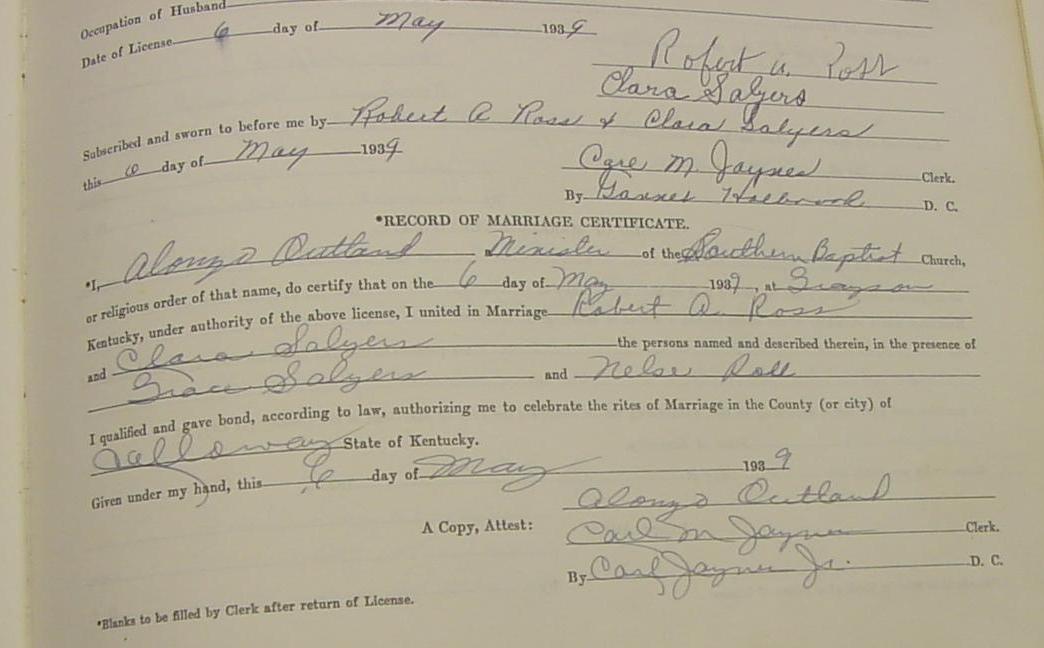 Occupation of Husband
Date of License 6 day of May 1939
Robert A. Ross
Clara Salyers
Subscribed and sworn to before me by Robert A Ross & Clara Salyers
this 6 day of May 1939
M. Jaynes Clerk.
By Holbrook D. C.
*RECORD OF MARRIAGE CERTIFICATE.
*I, Alonzo Outland Minister of the Southern Baptist Church,
or religious order of that name, do certify that on the 6 day of May 1939, at Grayson
Kentucky, under authority of the above license, I united in Marriage Robert A. Ross
and Clara Salyers the persons named and described therein, in the presence of
Grace Salyers and Nelse
I qualified and gave bond, according to law, authorizing me to celebrate the rites of Marriage in the County (or city) of
Calloway State of Kentucky.
Given under my hand, this 6 day of May 1939
Alonzo Outland
A Copy, Attest: Carl M Jaynes Clerk.
By Carl Jaynes Jr. D. C.
*Blanks to be filled by Clerk after return of License.